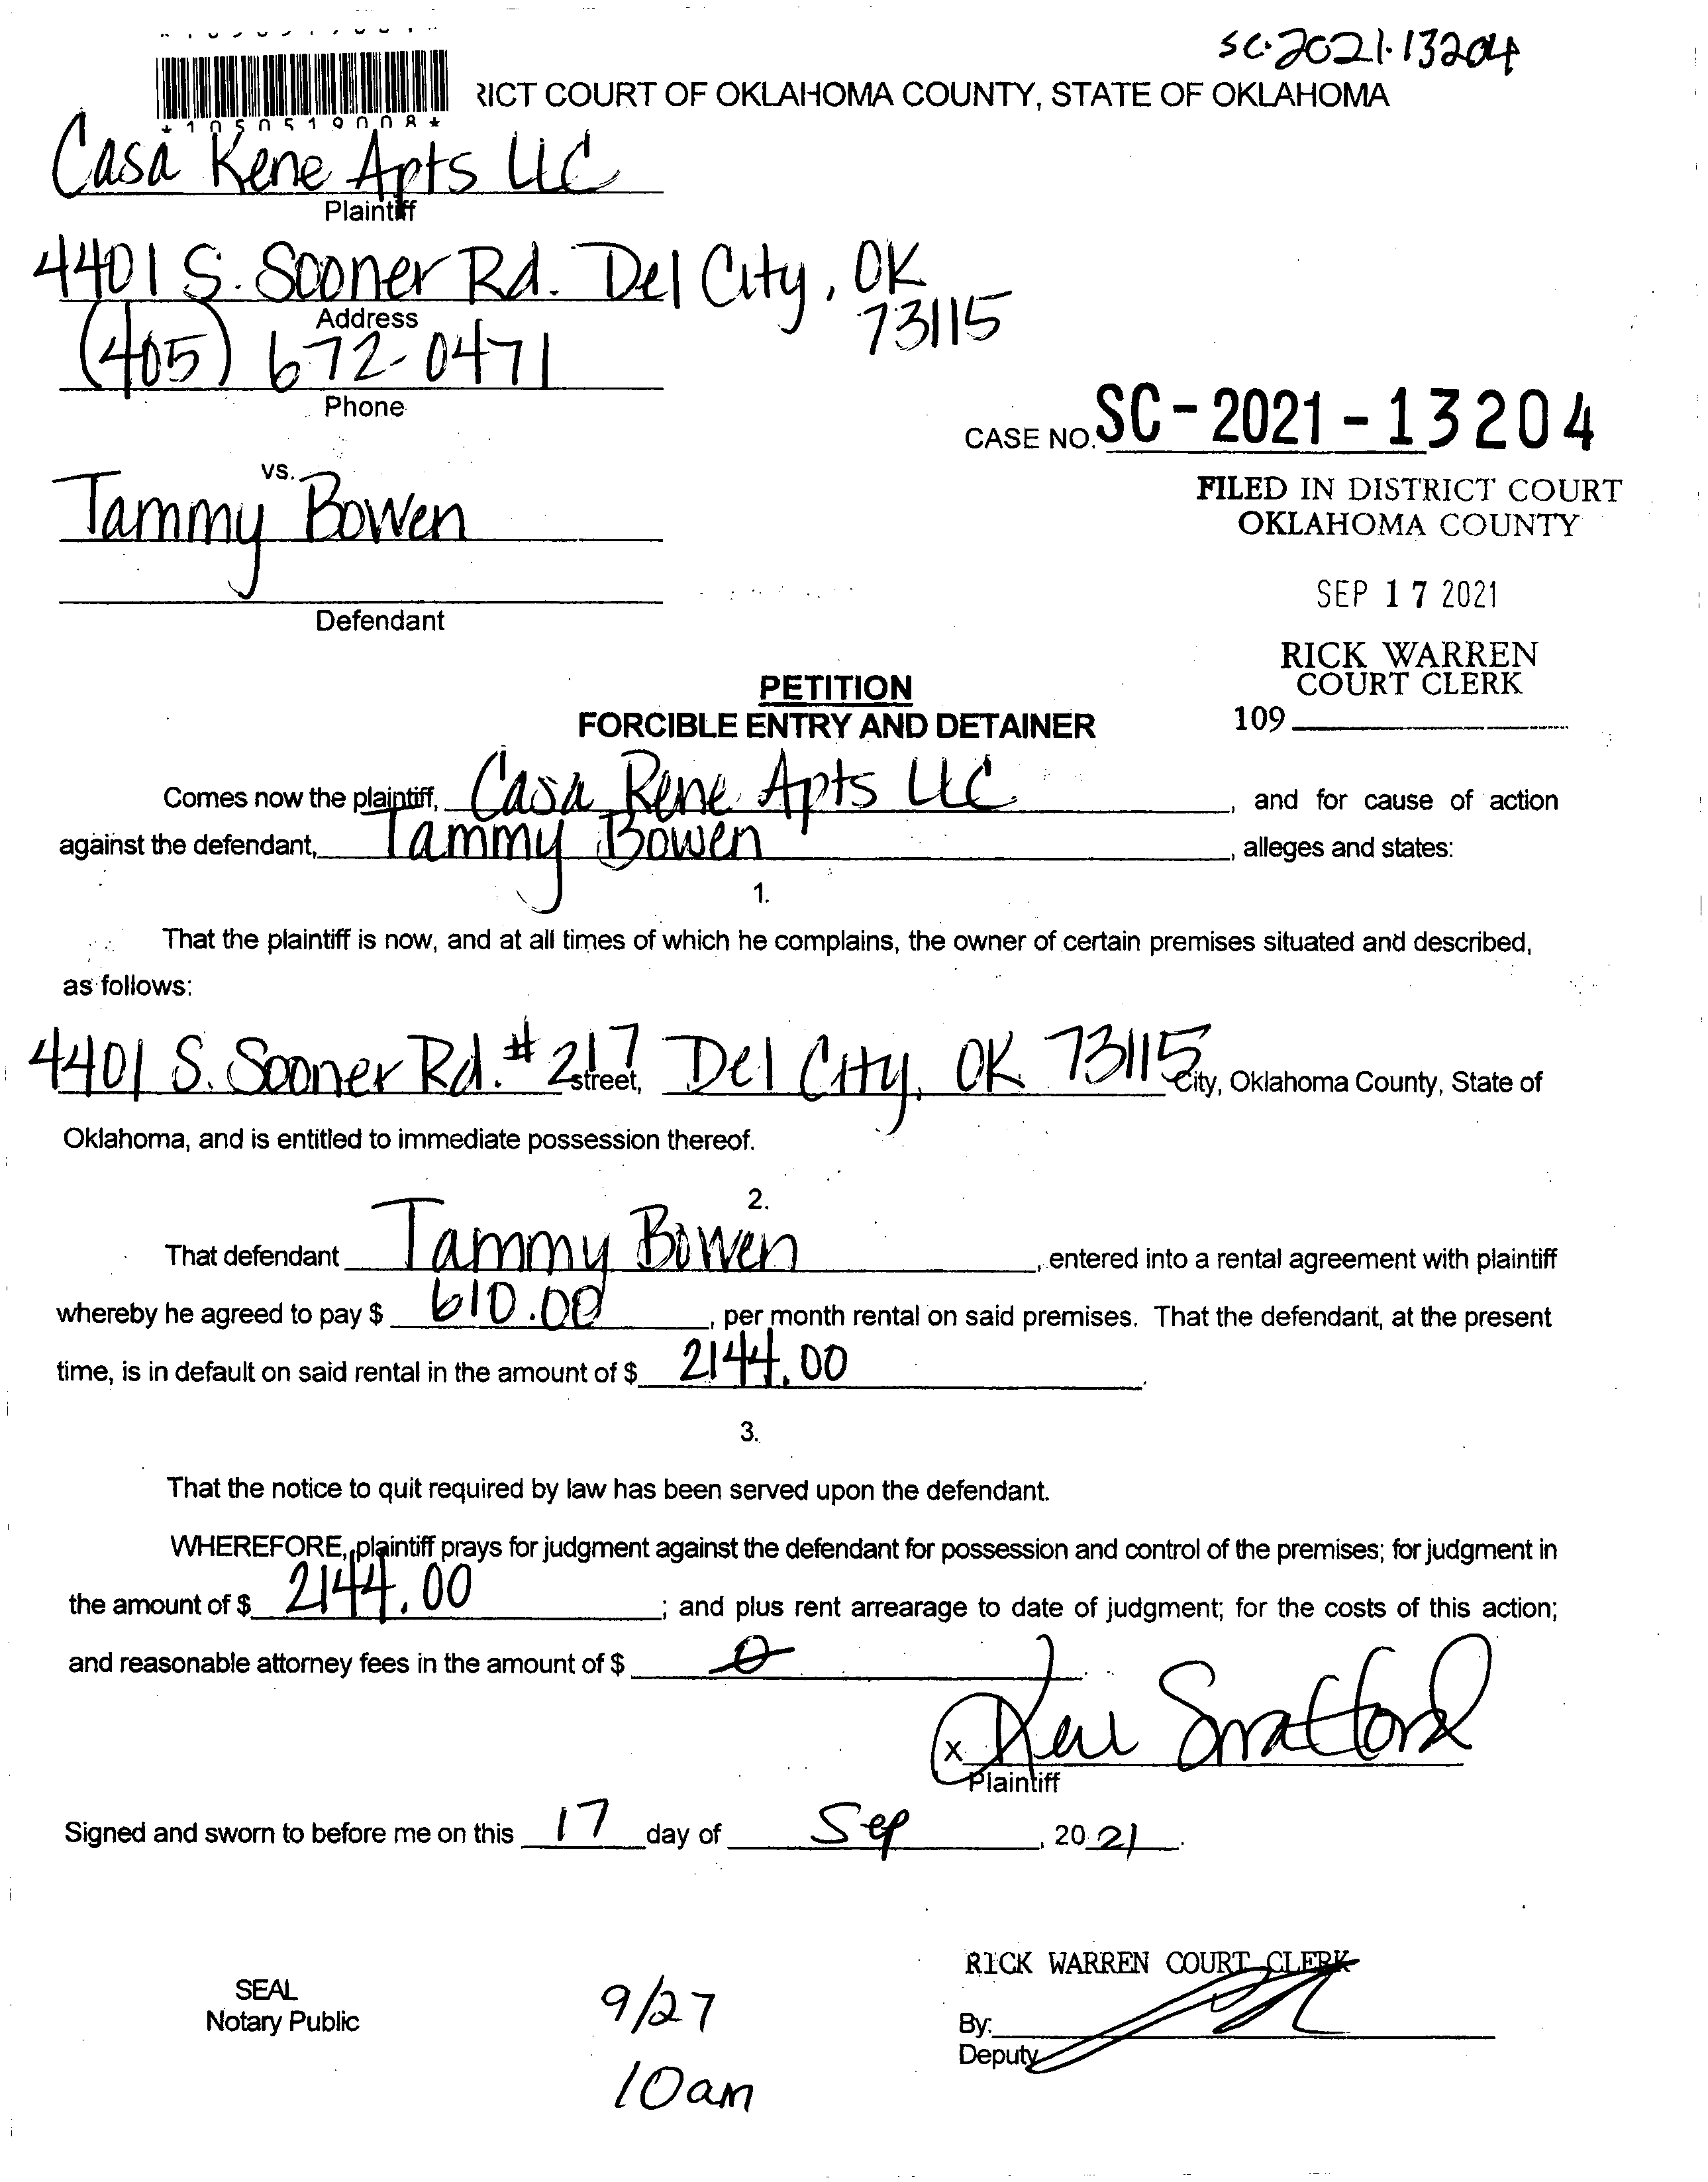 SC-2021-13204
RICT COURT OF OKLAHOMA COUNTY, STATE OF OKLAHOMA
*1050519008*
Casa Rene Apts LLC
Plaintiff
4401 S. Sooner Rd. Del City, OK
73115
Address
(405) 672-0471
Phone
CASE NO. SC-2021-13204
vs.
Tammy Bowen
Defendant
FILED IN DISTRICT COURT
OKLAHOMA COUNTY
SEP 17 2021
RICK WARREN
COURT CLERK
109
PETITION
FORCIBLE ENTRY AND DETAINER
Comes now the plaintiff, Casa Rene Apts LLC, and for cause of action
against the defendant, Tammy Bowen, alleges and states:
1.
That the plaintiff is now, and at all times of which he complains, the owner of certain premises situated and described,
as follows:
4401 S. Sooner Rd. #217 street, Del City, OK 73115 City, Oklahoma County, State of
Oklahoma, and is entitled to immediate possession thereof.
2.
That defendant Tammy Bowen, entered into a rental agreement with plaintiff
whereby he agreed to pay $ 610.00, per month rental on said premises. That the defendant, at the present
time, is in default on said rental in the amount of $ 2144.00.
3.
That the notice to quit required by law has been served upon the defendant.
WHEREFORE, plaintiff prays for judgment against the defendant for possession and control of the premises; for judgment in
the amount of $ 2144.00; and plus rent arrearage to date of judgment; for the costs of this action;
and reasonable attorney fees in the amount of $ 0.
x
Plaintiff
Signed and sworn to before me on this 17 day of Sep, 2021.
RICK WARREN COURT CLERK
SEAL
Notary Public
9/27
10am
By:
Deputy